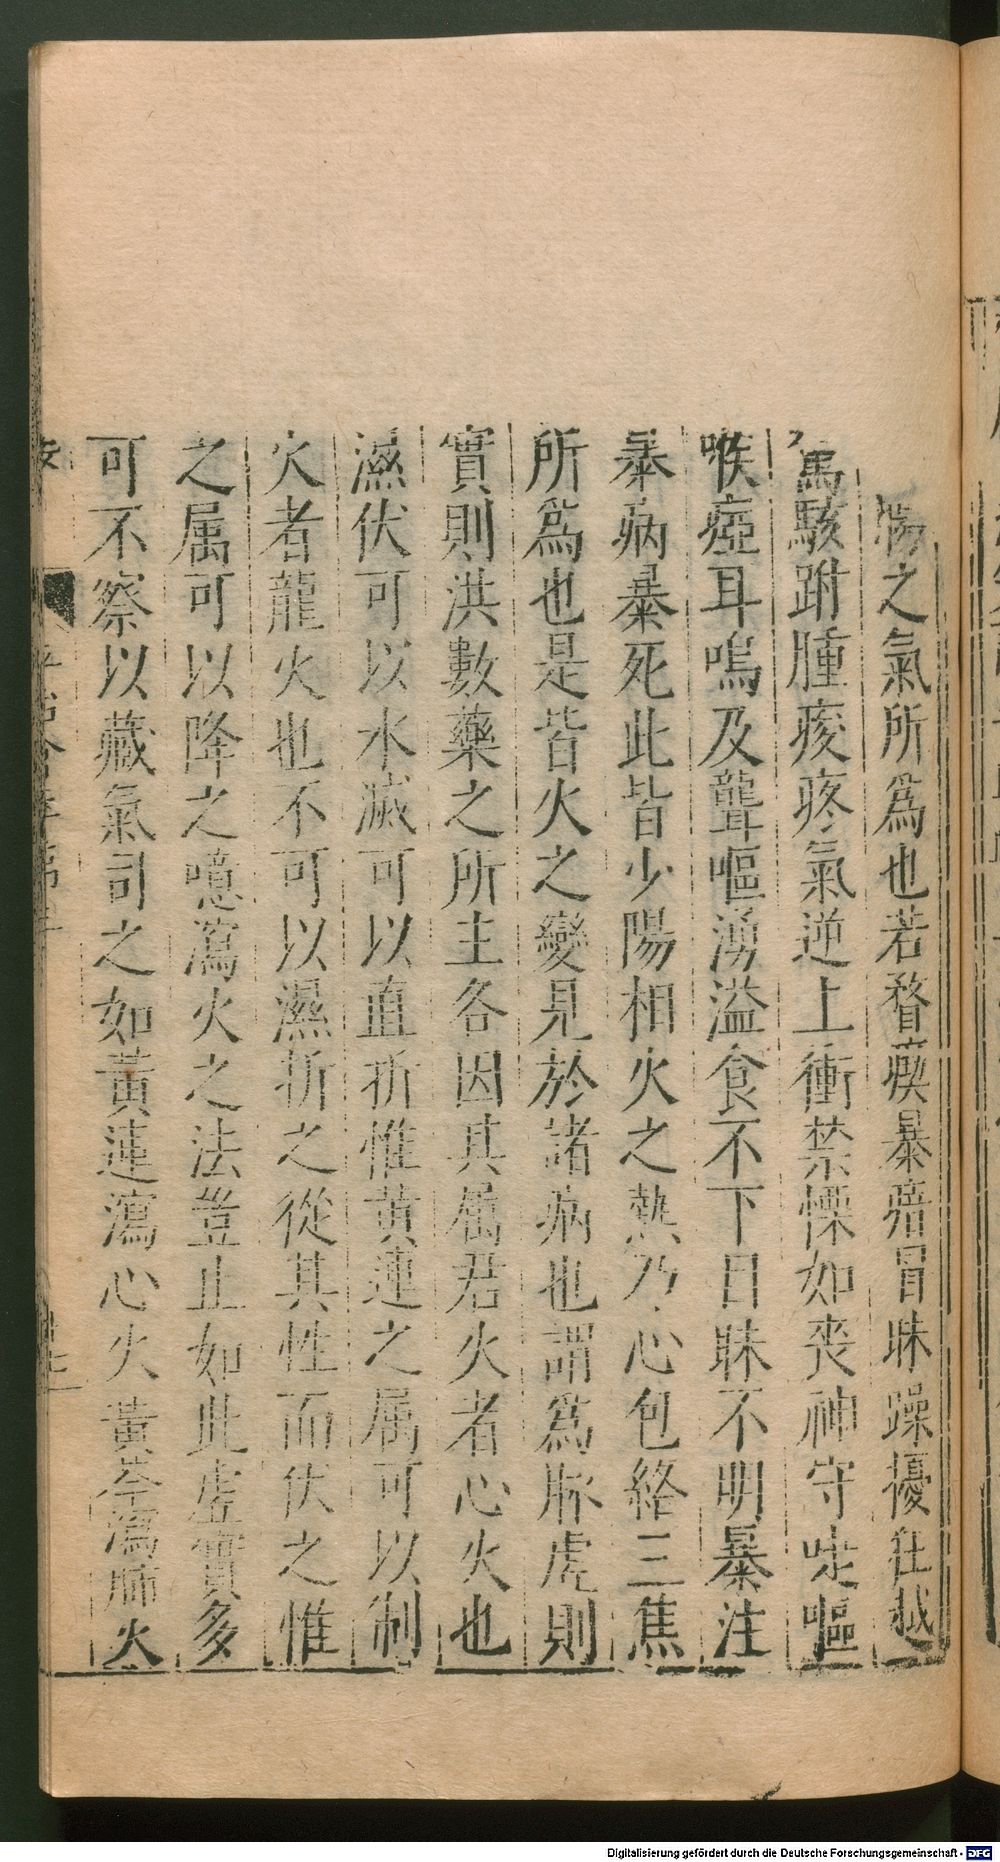 之氣所爲也若瞀瘈暴瘖冒昧躁擾狂越
駭胕腫痠疼氣逆上衝禁慄如喪神守嚏嘔
喉瘂耳鳴及聾嘔湧溢食不下目昧不明暴注
暴病暴死此皆少陽相火之熱乃心包絡三焦
所爲也是皆火之變見於諸病也謂爲脉虛則
實則洪數藥之所主各因其属君火者心火也
濕伏可以水滅可以直折惟黃連之属可以制
火者龍火也不可以濕折之從其性而伏之惟
之属可以降之噫瀉火之法豈止如此虛實多
可不察以藏氣司之如黃連瀉心火黃芩瀉肺火
Digitalisierung gefördert durch die Deutsche Forschungsgemeinschaft - DFG